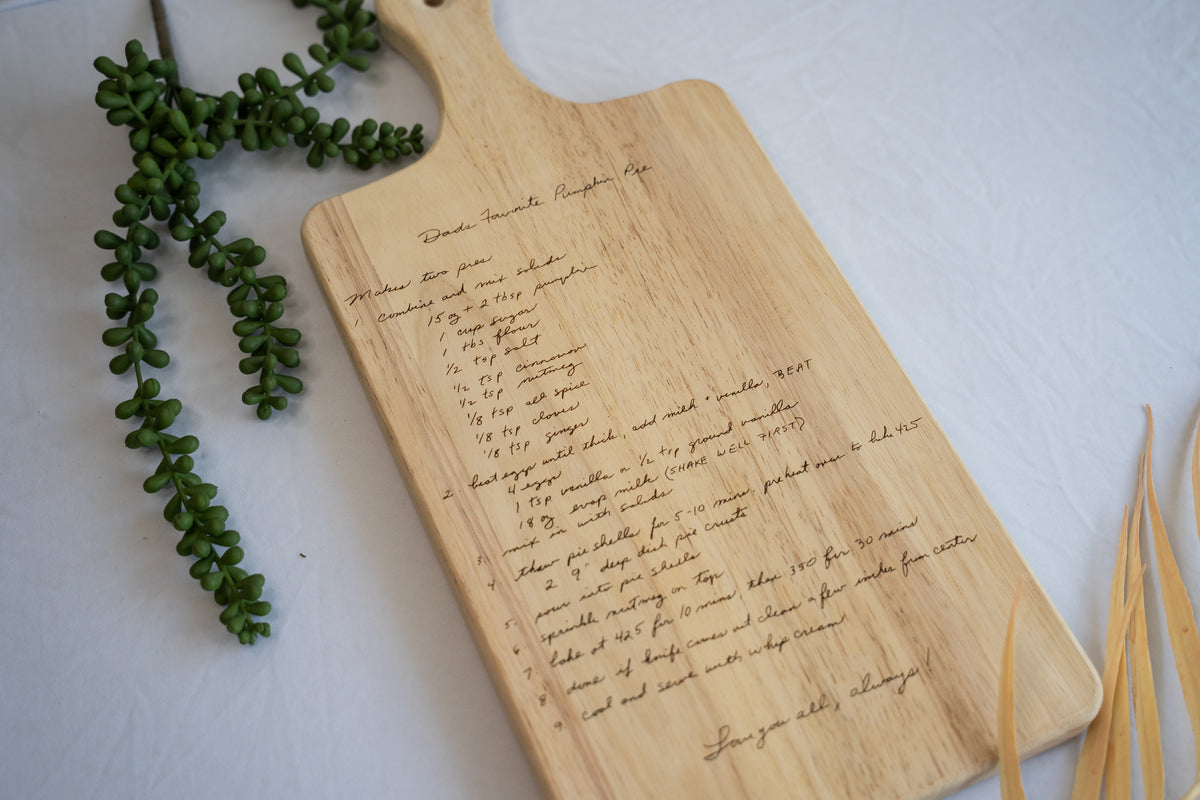 Dads Favorite Pumpkin Pie
Makes two pies
1. combine and mix solids
15 oz + 2 tbsp pumpkin
1 cup sugar
1 tbs flour
1/2 tsp salt
1/2 tsp cinnamon
1/2 tsp nutmeg
1/8 tsp all spice
1/8 tsp cloves
1/8 tsp ginger
2. beat eggs until thick, add milk + vanilla, BEAT
4 eggs
1 tsp vanilla or 1/2 tsp ground vanilla
18 oz evap milk (SHAKE WELL FIRST)
3. mix in with solids
4. thaw pie shells for 5-10 mins. preheat oven to bake 425
2 9" deep dish pie crusts
5. pour into pie shells
6. sprinkle nutmeg on top
7. bake at 425 for 10 mins, then 350 for 30 mins
8. done if knife comes out clean a few inches from center
9. cool and serve with whip cream
Love you all, always!